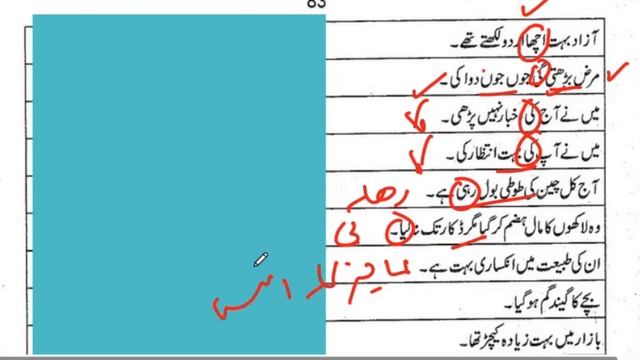 83
آزاد بہت اچھا اردو لکھتے تھے۔
مرض بڑھتی گئی جوں جوں دوا کی۔
میں نے آج کی اخبار نہیں پڑھی۔
میں نے آپ کی بہت انتظار کی۔
آج کل چین کی طوطی بول رہی ہے۔
وہ لاکھوں کا مال ہضم کر گیا مگر ڈکار تک نہ لیا۔
ان کی طبیعت میں انکساری بہت ہے۔
بچے کا گیند گم ہو گیا۔
بازار میں بہت زیادہ کیچڑ تھا۔